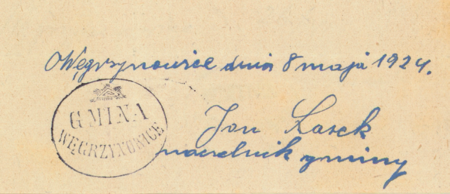 Węgrzynowice dnia 8 maja 1924.
GMINA
WĘGRZYNOWICE
Jan Lasek
naczelnik gminy